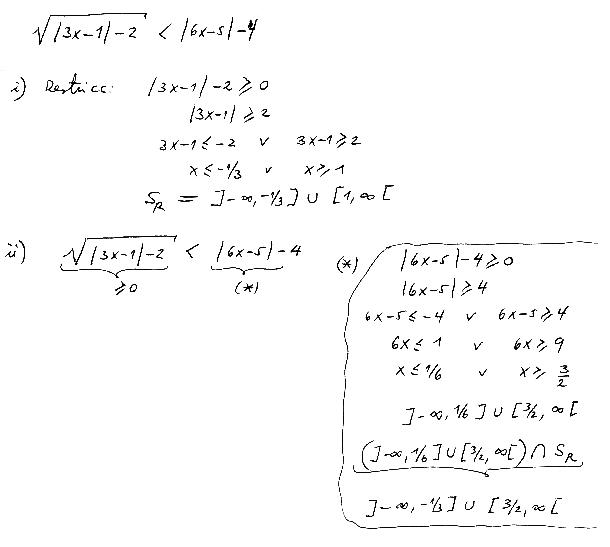 √|3x-1|-2 < |6x-5|-4
i) Restricc: |3x-1|-2 ≥ 0
|3x-1| ≥ 2
3x-1 ≤ -2 v 3x-1 ≥ 2
x ≤ -1/3 v x ≥ 1
S_R = ]-∞, -1/3] ∪ [1, ∞[
ii) √|3x-1|-2 < |6x-5|-4
≥0 (*)
(*) |6x-5|-4 ≥ 0
|6x-5| ≥ 4
6x-5 ≤ -4 v 6x-5 ≥ 4
6x ≤ 1 v 6x ≥ 9
x ≤ 1/6 v x ≥ 3/2
]-∞, 1/6] ∪ [3/2, ∞[
(]-∞, 1/6] ∪ [3/2, ∞[) ∩ S_R
]-∞, -1/3] ∪ [3/2, ∞[